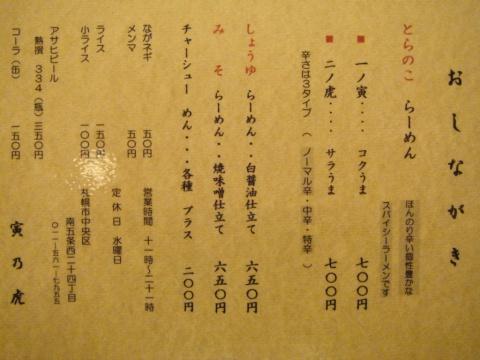 おしながき
ほんのり辛い個性豊かな
スパイシーラーメンです
とらのこ らーめん
■ 一ノ寅・・・・ コクうま 七〇〇円
■ 二ノ虎・・・・ サラうま 七〇〇円
辛さは3タイプ ( ノーマル辛・中辛・特辛 )
しょうゆ らーめん・・白醤油仕立て 六五〇円
みそ らーめん・・焼味噌仕立て 六五〇円
チャーシュー めん・・・各種 プラス 二〇〇円
ながネギ 五〇円
メンマ 五〇円
ライス 一五〇円
小ライス 一〇〇円
アサヒビール
熱撰 334(瓶) 三五〇円
コーラ(缶) 一五〇円
営業時間 十一時〜二十一時
定休日 水曜日
札幌市中央区
南五条西二十四丁目
〇一一-五六一-七九五五
寅乃虎